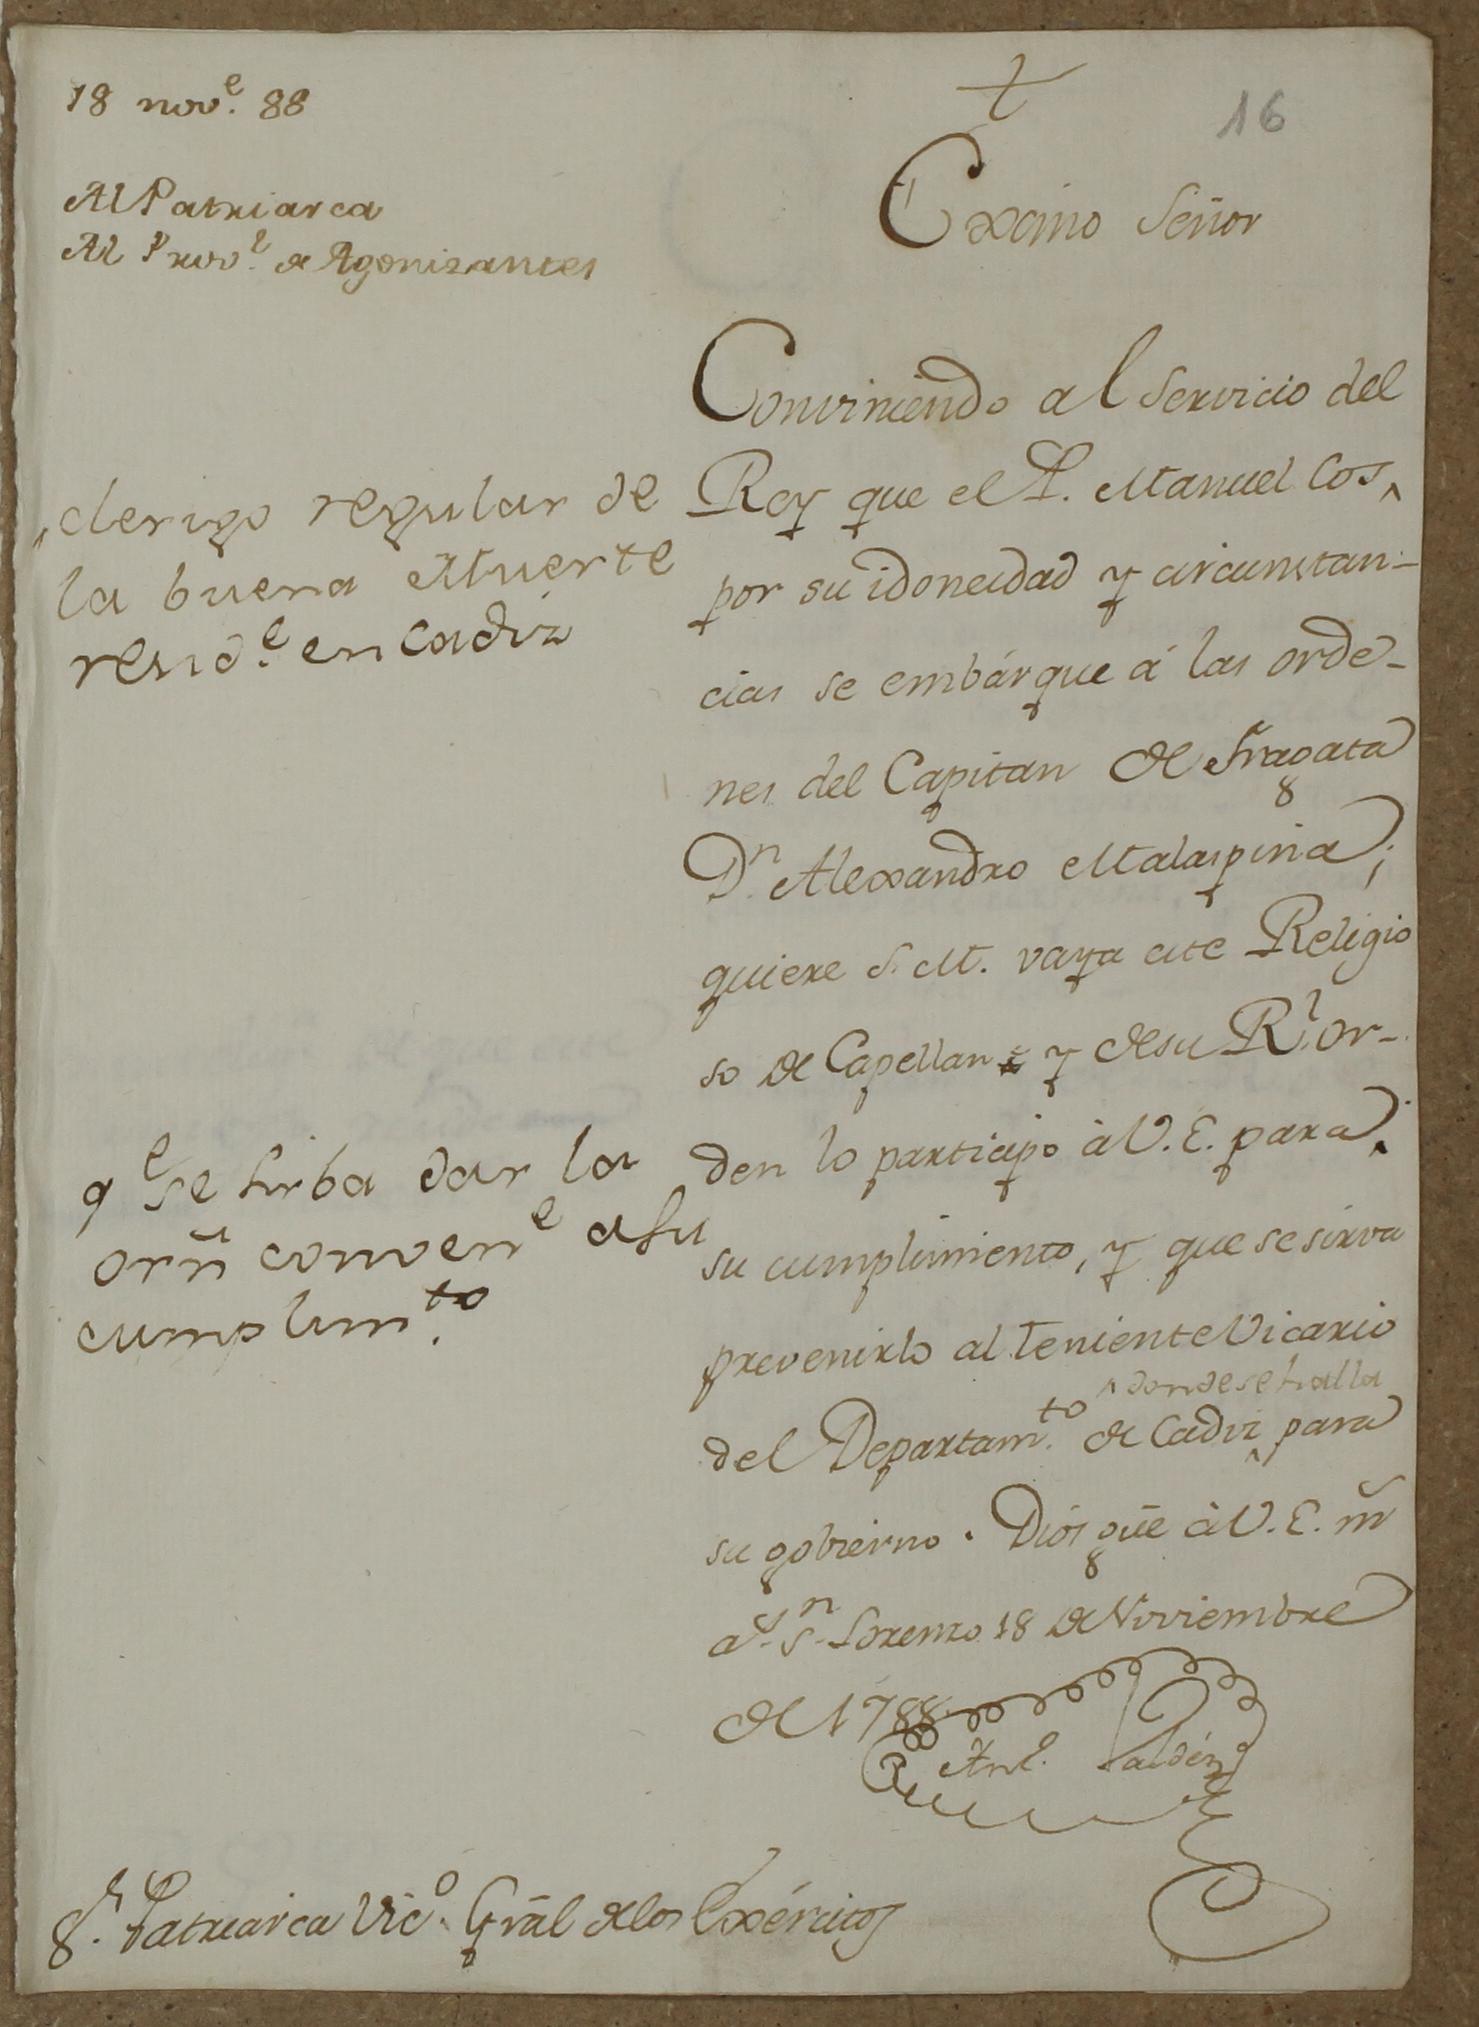 18 nov.e 88
16
Al Patriarca
Al Prov.l de Agonizantes
Excmo Señor
Conviniendo al servicio del
Rey que el P. Manuel Cos,
clerigo regular de
la buena Muerte
resid.e en Cadiz
por su idoneidad y circunstan-
cias se embárque á las orde-
nes del Capitan de Fragata
D.n Alexandro Malaspina;
quiere S. M. vaya este Religio
so de Capellan y de su R.l or-
den lo participo à V. E. para
q.e se sirba dar la
orñ conven.e a su
cumplim.to
su cumplimiento, y que se sirva
prevenirlo al Teniente Vicario
donde se halla
del Departam.to de Cadiz para
su gobierno. Dios güe à V. E. m.s
a.s S.n Lorenzo 18 de Noviembre
de 1788.
Ant.o Valdés
S.r Patriarca Vic.o Grãl de los Exércitos